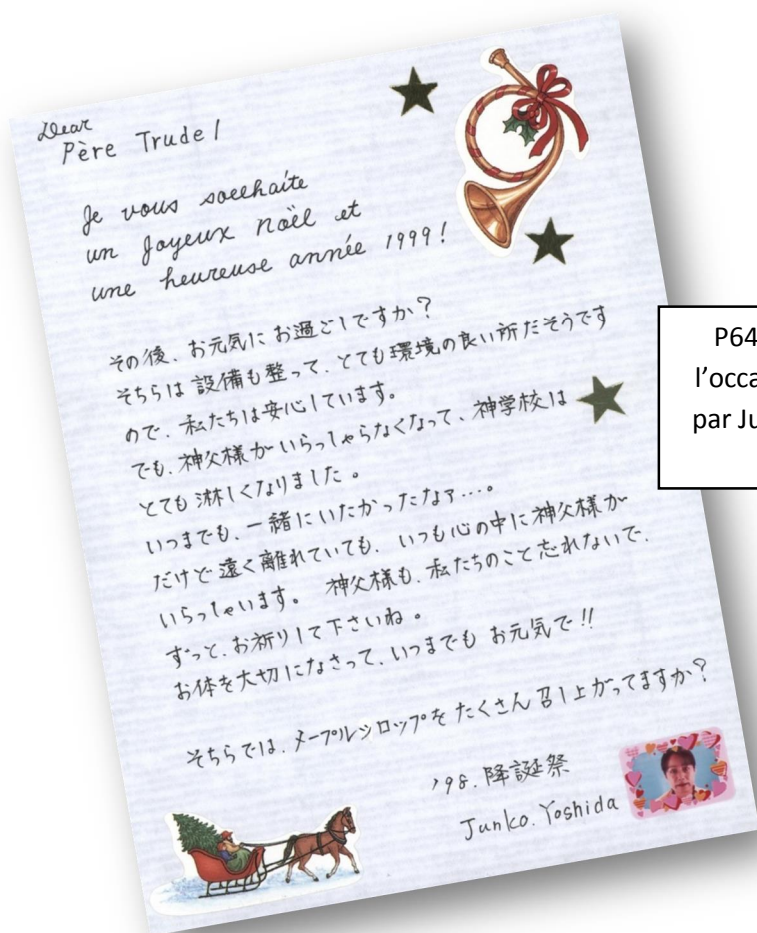 Dear
Père Trudel
Je vous souhaite
un Joyeux Noël et
une heureuse année 1999!
その後、お元気にお過ごしですか?
そちらは設備も整って、とても環境の良い所だそうです
ので、私たちは安心しています。
でも、神父様がいらっしゃらなくなって、神学校は
とても淋しくなりました。
いつまでも、一緒にいたかったなァ…。
だけど遠く離れていても、いつも心の中に神父様が
いらっしゃいます。 神父様も、私たちのこと忘れないで、
ずっと、お祈りして下さいね。
お体を大切になさって、いつまでも お元気で!!
そちらでは、メープルシロップをたくさん召し上がってますか?
'98. 降誕祭
Junko. Yoshida
P64
l'occa
par Ju